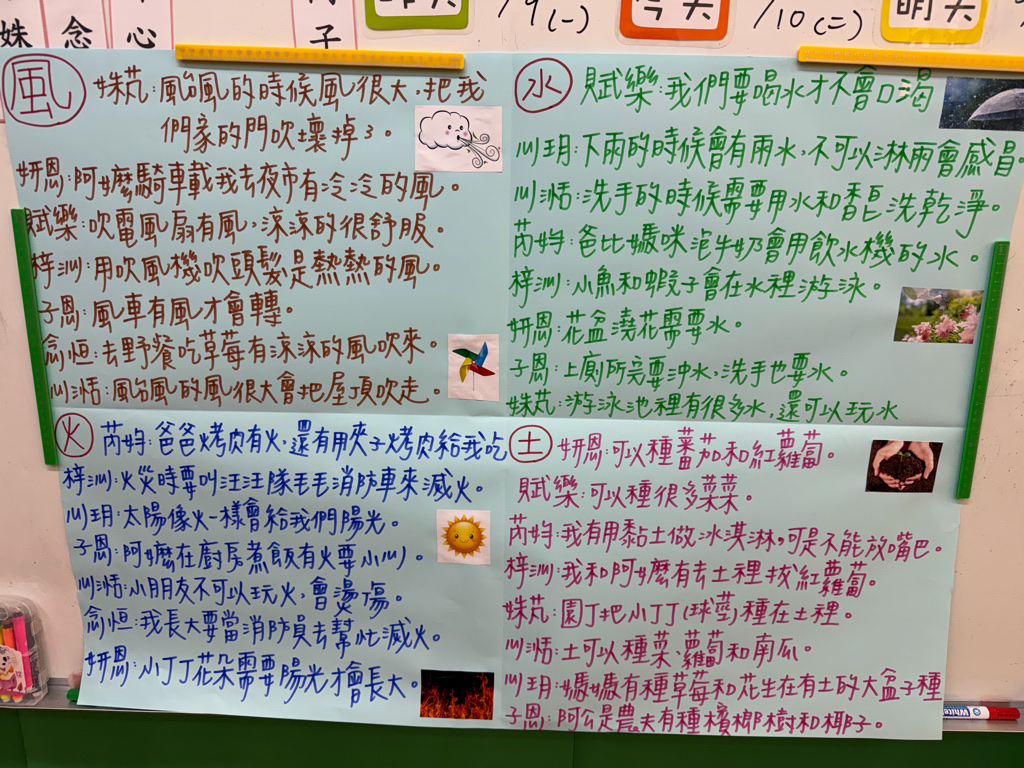 姝 念 心 子
昨天
/9(一)
今天
/10(二)
明天
風
姝芃:颱風的時候風很大,把我
們家的門吹壞掉了。
妍恩:阿嬤騎車載我去夜市有冷冷的風。
賦樂:吹電風扇有風,涼涼的很舒服。
梓渊:用吹風機吹頭髮是熱熱的風。
子恩:風車有風才會轉。
念恒:去野餐吃草莓有涼涼的風吹來。
川恬:颱風的風很大會把屋頂吹走。
水
賦樂:我們要喝水才不會口渴
川玥:下雨的時候會有雨水,不可以淋雨會感冒。
川湉:洗手的時候需要用水和香皂洗乾淨。
芮妢:爸比媽咪泡牛奶會用飲水機的水。
梓渊:小魚和蝦子會在水裡游泳。
妍恩:花盆澆花需要水。
子恩:上廁所完要沖水,洗手也要水。
姝芃:游泳池裡有很多水,還可以玩水
火
芮妢:爸爸烤肉有火,還有用夾子烤肉給我吃
梓渊:火災時要叫汪汪隊毛毛消防車來滅火。
川玥:太陽像火一樣會給我們陽光。
子恩:阿嬤在廚房煮飯有火要小心。
川湉:小朋友不可以玩火,會燙傷。
念恒:我長大要當消防員去幫忙滅火。
妍恩:小丁丁花朵需要陽光才會長大。
土
妍恩:可以種蕃茄和紅蘿蔔。
賦樂:可以種很多菜菜。
芮妢:我有用黏土做冰淇淋,可是不能放嘴巴。
梓渊:我和阿嬤有去土裡找紅蘿蔔。
姝芃:園丁把小丁丁(球莖)種在土裡。
川湉:土可以種菜、蘿蔔和南瓜。
川玥:媽媽有種草莓和花生在有土的大盆子種
子恩:阿公是農夫有種檳榔樹和椰子。
White